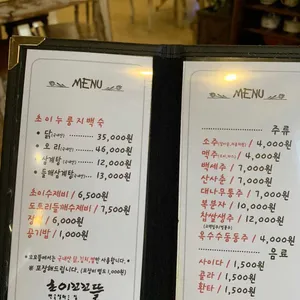 MENU
초이누룽지백숙
• 닭 35,000원
• 오리 46,000원
• 삼계탕 12,000원
• 들깨삼계탕 13,000원
초이수제비 / 6,500원
도토리들깨수제비 / 7,500원
/ 6,000원
공기밥 / 1,000원
국내산 쌀, 김치, 닭만 사용합니다.
* 포장해드립니다. (포장비 별도 1,000원)
MENU
주류
소주 / 4,000원
맥주 / 4,000원
백세주 / 7,000원
산사춘 / 7,000원
대나무통주 / 7,000원
복분자 / 10,000원
찹쌀생주 / 12,000원
옥수수동동주 / 4,000원
음료
사이다 / 1,500원
콜라 / 1,500원
환타 / 1,500원